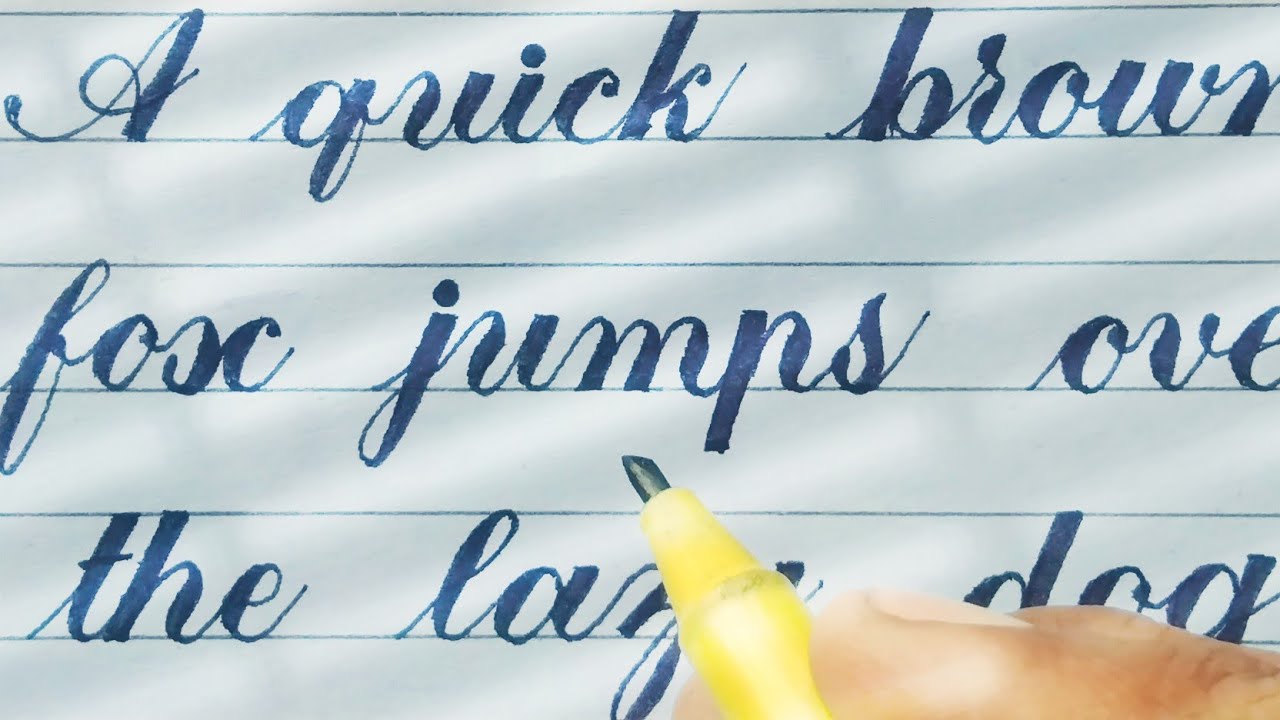 A quick brown
fox jumps over
the lazy dog